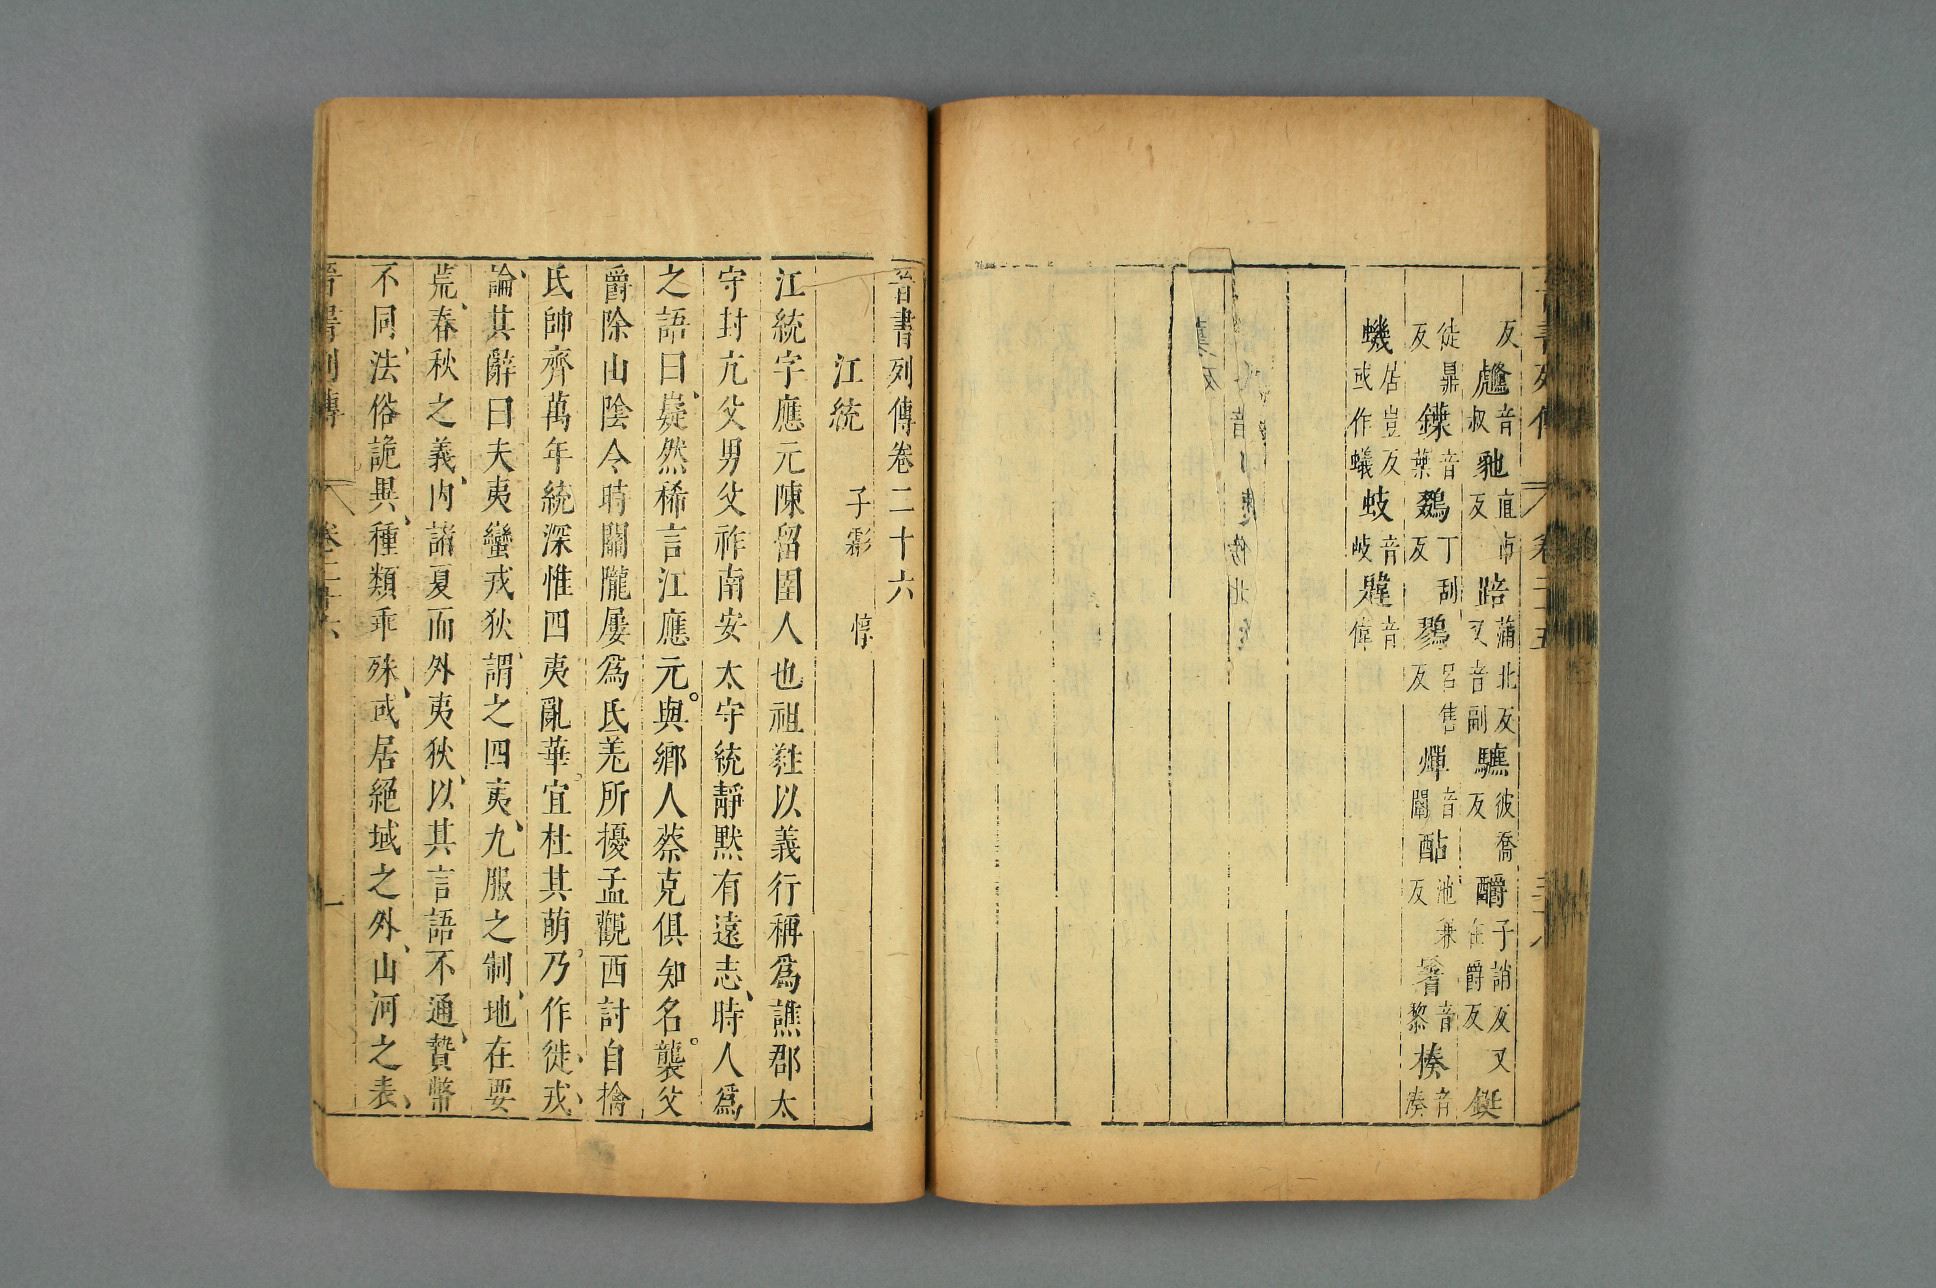 晉書列傳 卷二十五
反䱜音叔䶔直占反踣蒲北反又音副驫彼喬反釂子誚反又在爵反鋋
徒鼎反鏷音葉鵽丁刮反鵽呂隽反燀音闡酟池兼反晷音黎楱音湊
蟣居豈反或作蟻蚑音岐韙音偉
晉書列傳卷二十六
江統 子虨 惇
江統字應元陳留圉人也祖蕤以義行稱爲譙郡太
守封亢父男父祚南安太守統靜默有遠志時人爲
之語曰嶷然稀言江應元與鄉人蔡克俱知名襲父
爵除山陰令時關隴屢爲氐羌所擾孟觀西討自擒
氐帥齊萬年統深惟四夷亂華宜杜其萌乃作徙戎
論其辭曰夫夷蠻戎狄謂之四夷九服之制地在要
荒春秋之義內諸夏而外夷狄以其言語不通贄幣
不同法俗詭異種類乖殊或居絕域之外山河之表
晉書列傳 卷二十六 一